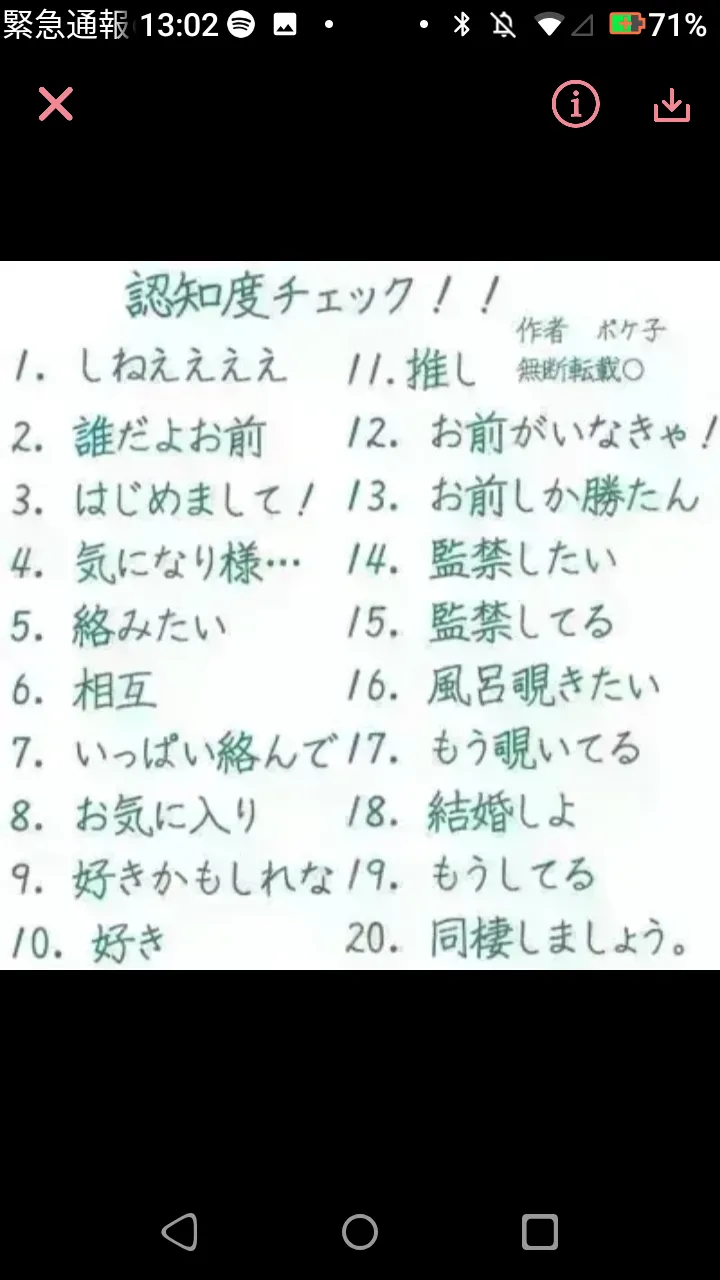 緊急通報 13:02 71%
認知度チェック！！
作者 ポケ子
無断転載〇
1. しねえええええ
2. 誰だよお前
3. はじめまして！
4. 気になり様…
5. 絡みたい
6. 相互
7. いっぱい絡んで
8. お気に入り
9. 好きかもしれな
10. 好き
11. 推し
12. お前がいなきゃ！
13. お前しか勝たん
14. 監禁したい
15. 監禁してる
16. 風呂覗きたい
17. もう覗いてる
18. 結婚しよ
19. もうしてる
20. 同棲しましょう。